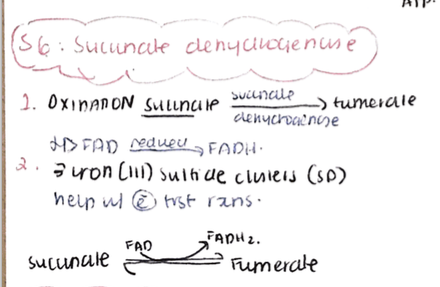 ATP.
S6: Succinate dehydrogenase
1. OXIDATION succinate succinate dehydrogenase → fumerate
↳ FAD reduced → FADH.
2. 3 iron (III) sulfide clusters (SD)
help w/ ē trst rxns.
succinate FAD FADH2. Fumerate